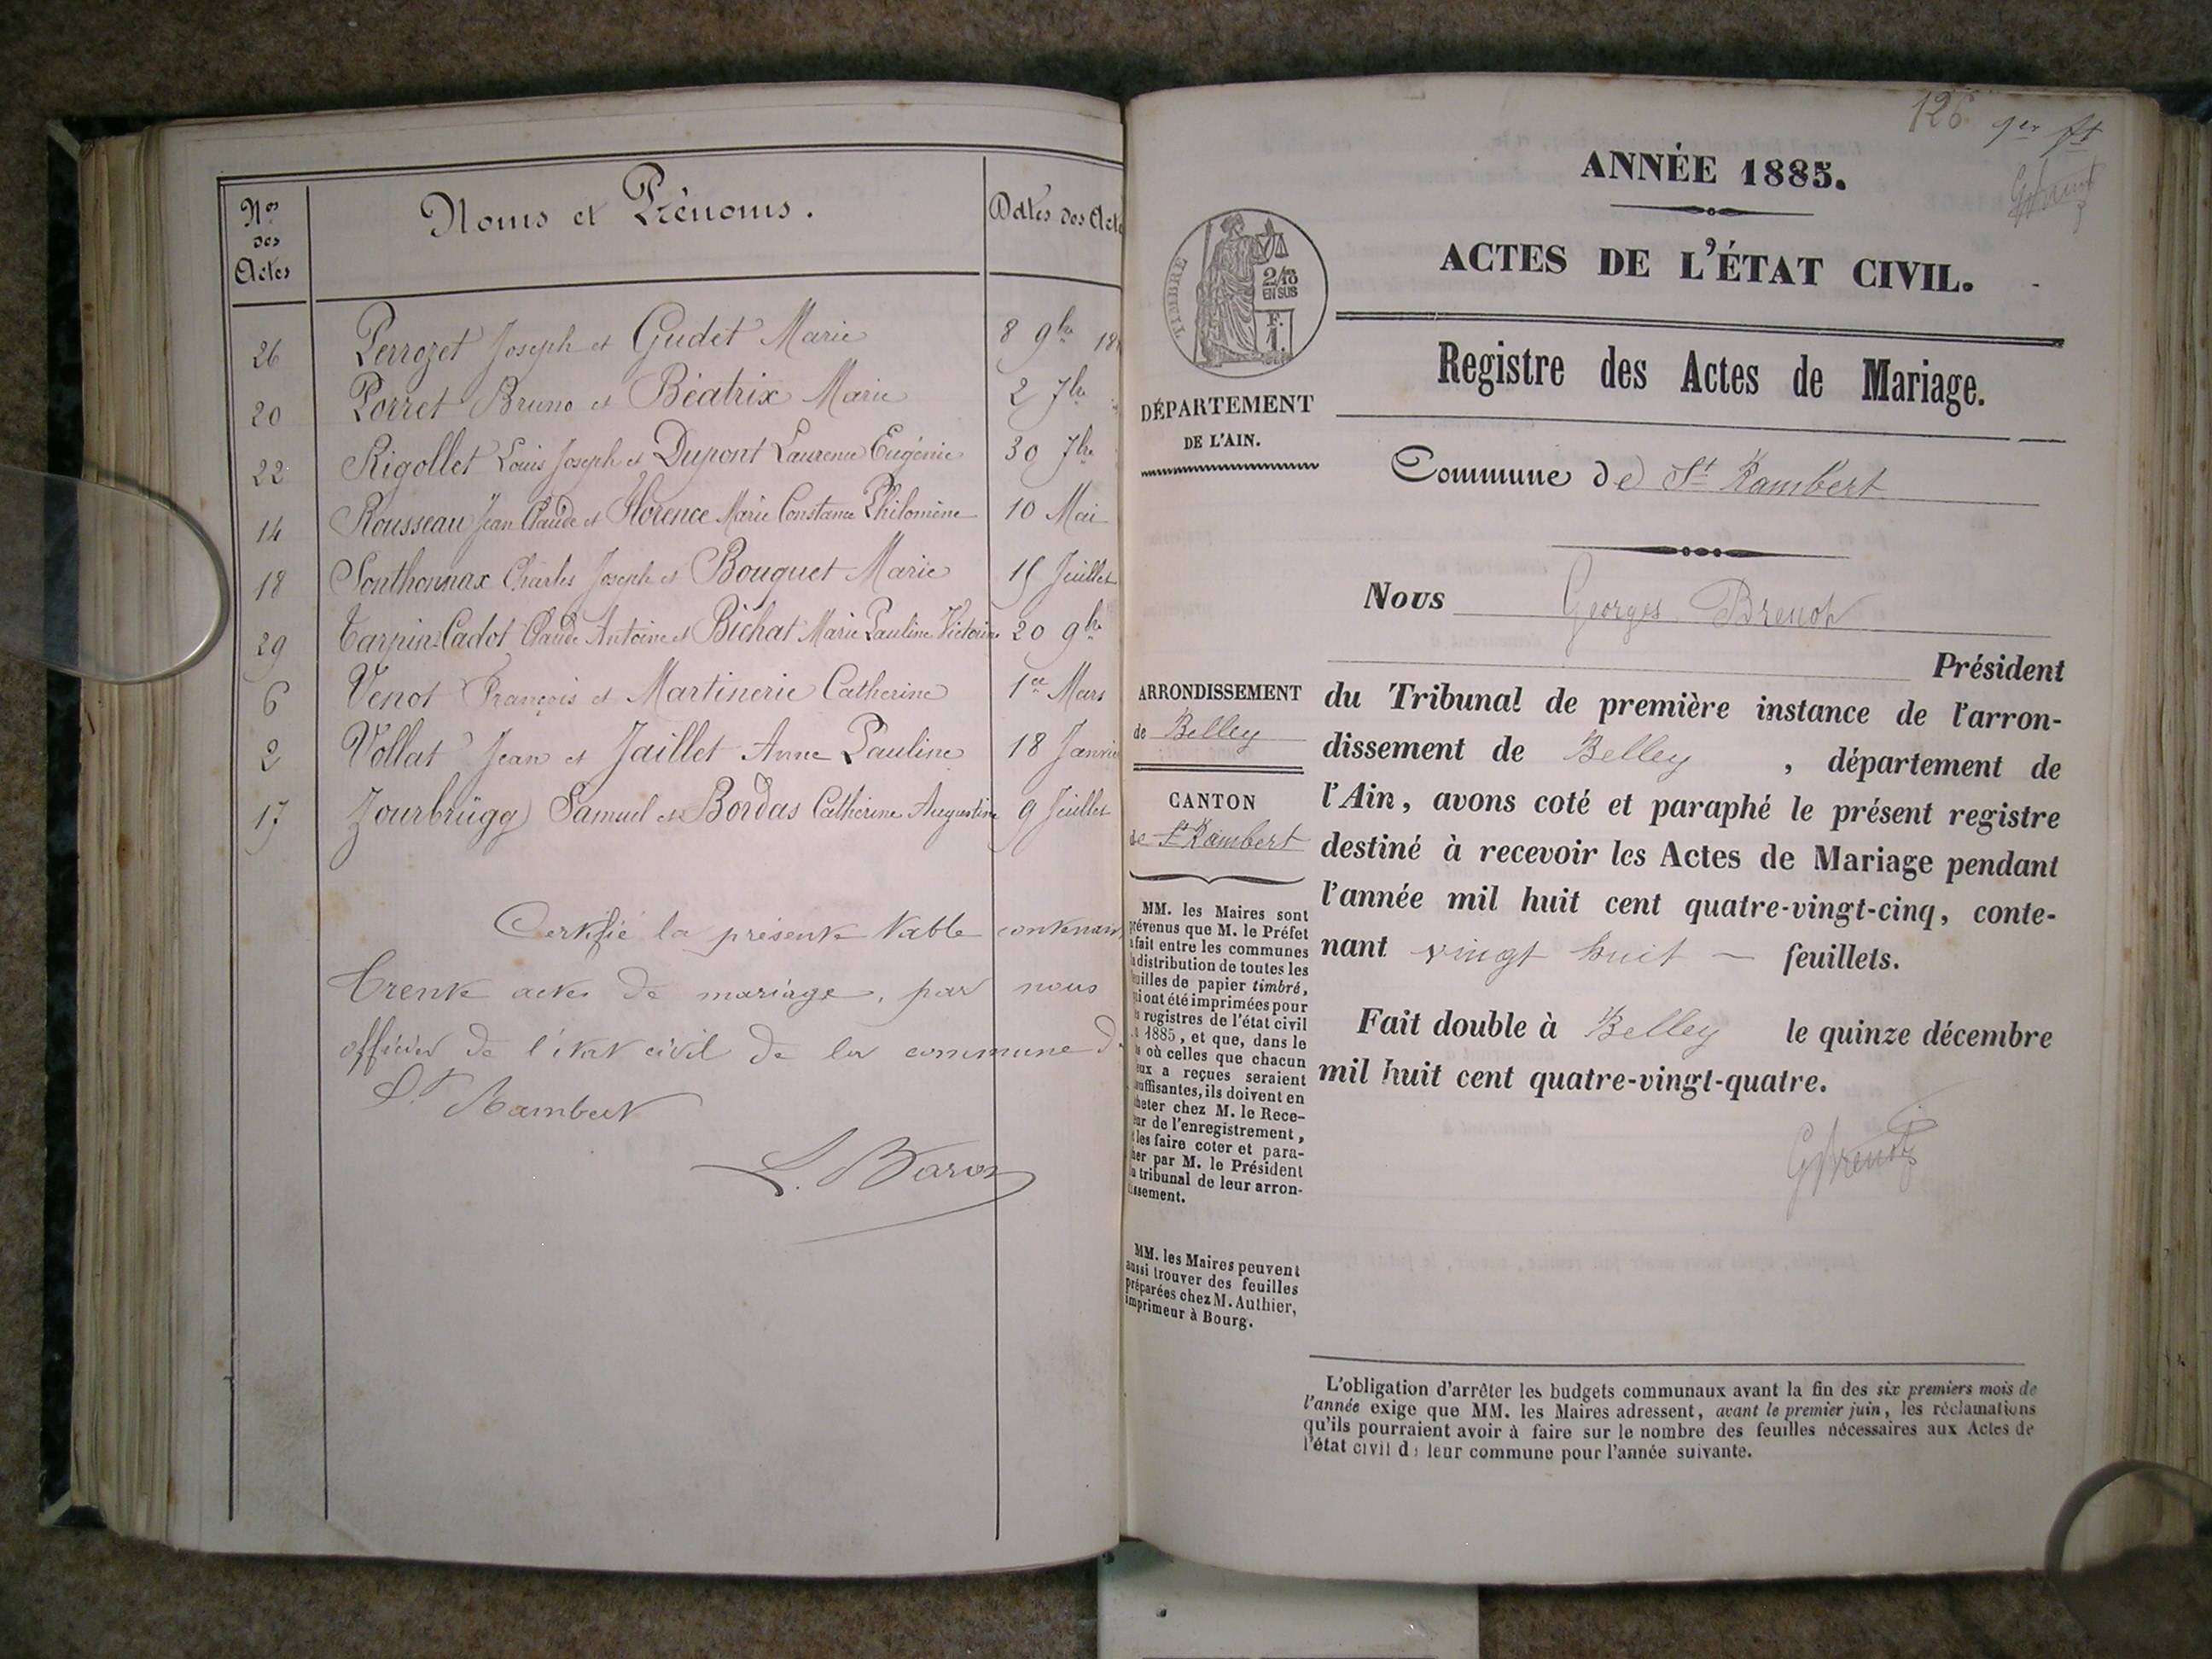 Nos des Actes
Noms et Prénoms.
Dates des Act
26 Perrozet Joseph et Gudet Marie 8 9bre 18
20 Porret Bruno et Béatrix Marie 2 7bre
22 Rigollet Louis Joseph et Dupont Laurence Eugénie 30 7bre
14 Rousseau Jean Claude et Florence Marie Constance Philomène 10 Mai
18 Sonthonnax Charles Joseph et Bouquet Marie 15 Juillet
29 Tarpin-Cadot Claude Antoine et Bichat Marie Pauline Victorine 20 9bre
6 Venot François et Martinerie Catherine 1er Mars
2 Vollat Jean et Jaillet Anne Pauline 18 Janvie
17 Zourbrügg Samuel et Bordas Catherine Augustine 9 Juillet
Certifié la présente table contenant
trente actes de mariage, par nous
officier de l'état civil de la commune d
St Rambert
L. Baron
126 1er ft
ANNÉE 1885.
ACTES DE L'ÉTAT CIVIL.
TIMBRE
2/10
EN SUS
F.
1.
Registre des Actes de Mariage.
DÉPARTEMENT
DE L'AIN.
Commune de St Rambert
Nous Georges Brenot
Président
ARRONDISSEMENT
de Belley
CANTON
de St Rambert
du Tribunal de première instance de l'arron-
dissement de Belley , département de
l'Ain, avons coté et paraphé le présent registre
destiné à recevoir les Actes de Mariage pendant
l'année mil huit cent quatre-vingt-cinq, conte-
nant vingt huit — feuillets.
Fait double à Belley le quinze décembre
mil huit cent quatre-vingt-quatre.
GBrenot
MM. les Maires sont
prévenus que M. le Préfet
a fait entre les communes
la distribution de toutes les
feuilles de papier timbré,
qui ont été imprimées pour
les registres de l'état civil
1885, et que, dans le
où celles que chacun
eux a reçues seraient
suffisantes, ils doivent en
heter chez M. le Rece-
eur de l'enregistrement,
les faire coter et para-
her par M. le Président
tribunal de leur arron-
issement.
MM. les Maires peuvent
aussi trouver des feuilles
préparées chez M. Authier,
imprimeur à Bourg.
L'obligation d'arrêter les budgets communaux avant la fin des six premiers mois de
l'année exige que MM. les Maires adressent, avant le premier juin, les réclamations
qu'ils pourraient avoir à faire sur le nombre des feuilles nécessaires aux Actes de
l'état civil de leur commune pour l'année suivante.